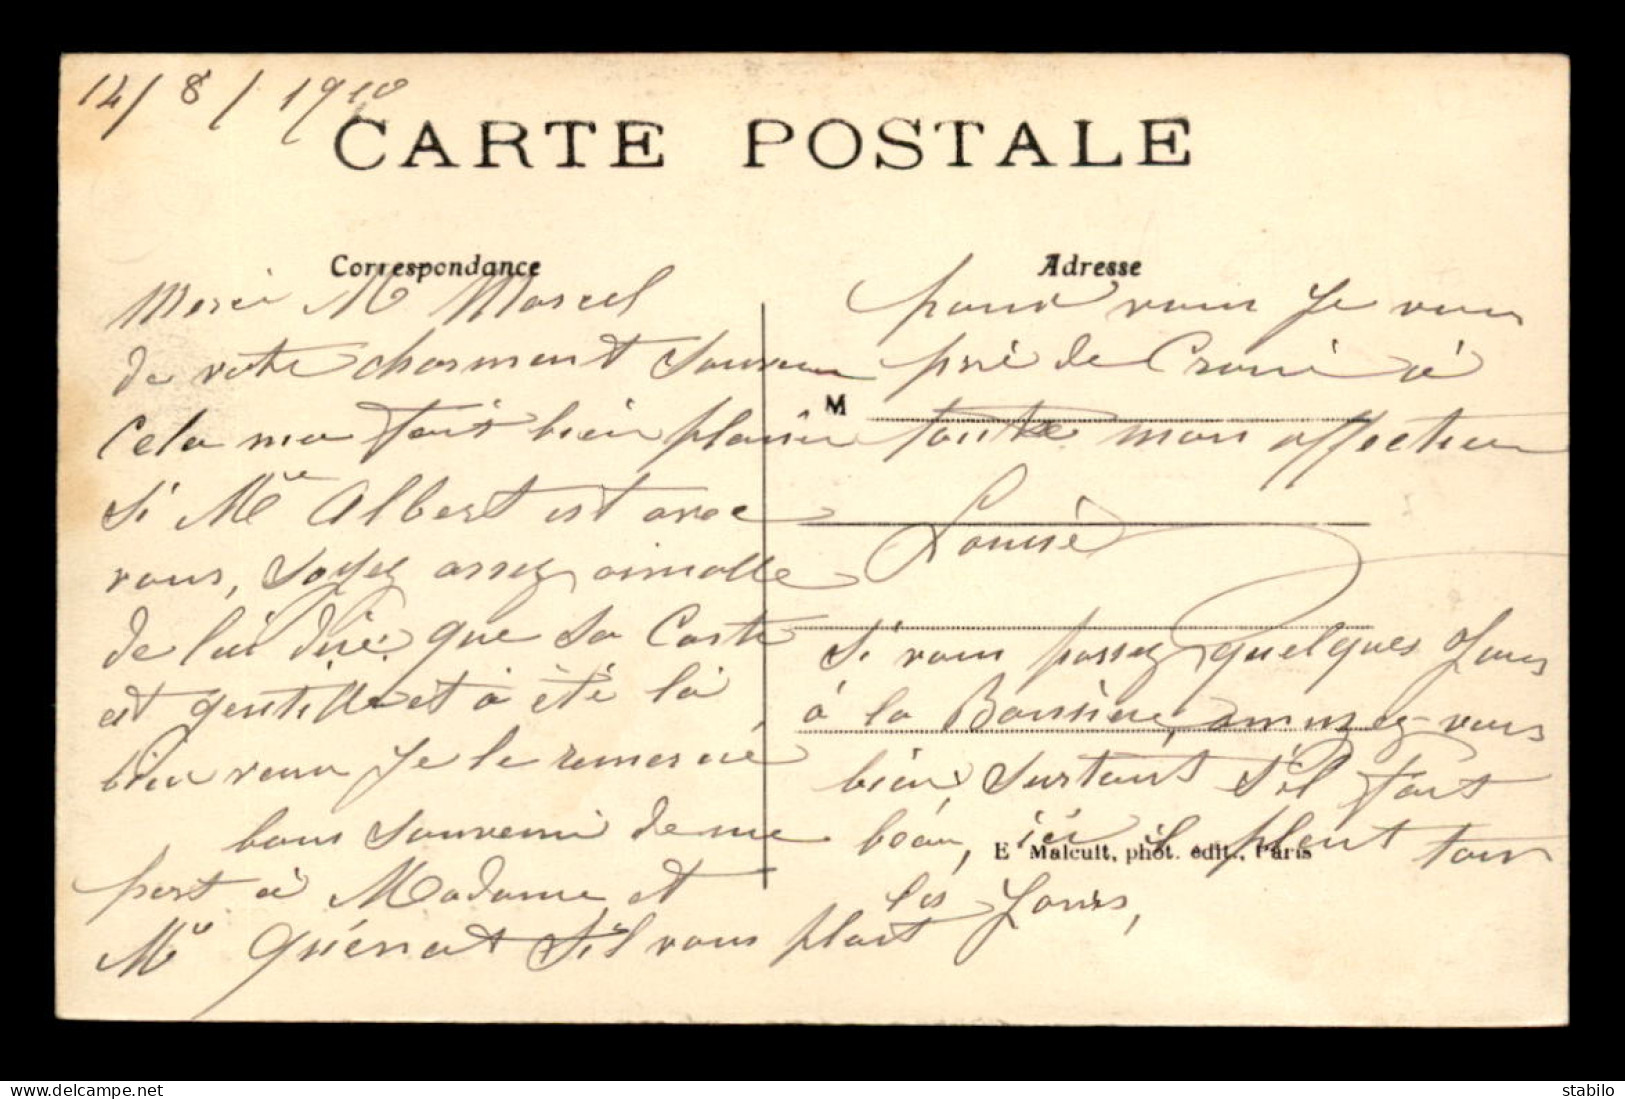 14/8/1910
CARTE POSTALE
Correspondance
Merci Mr Marcel
de votre charmant souvenir
Cela ma fait bien plaisir
si Mr Albert est avec
vous, soyez assez aimable
de lui dire que sa Carte
est gentille et à été là
bien venu je le remercie
bons souvenir de me
part à Madame et
Mr Guénat s'il vous plait
Adresse
pour vous Je vous
prie de Croire à
M
toute mon affection
Louise
Si vous passez quelques Jours
à la amuzez-vous
bien, surtout s'il fait
beau, ici il pleut tous
les Jours,
E Malcuit, phot. édit., Paris
delcampe.net
stabilo